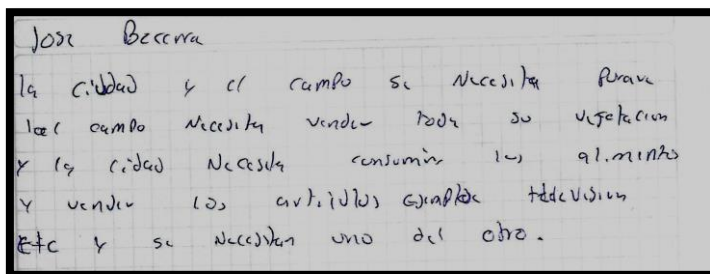 Jose Becerra
la ciudad y el campo se Necesita
el campo Necesita vender toda su vegetacion
y la cidad Necesita consumir los alimento
y vender los articulos Ejemplo televisiun
Etc y se Necesitan uno del otro.